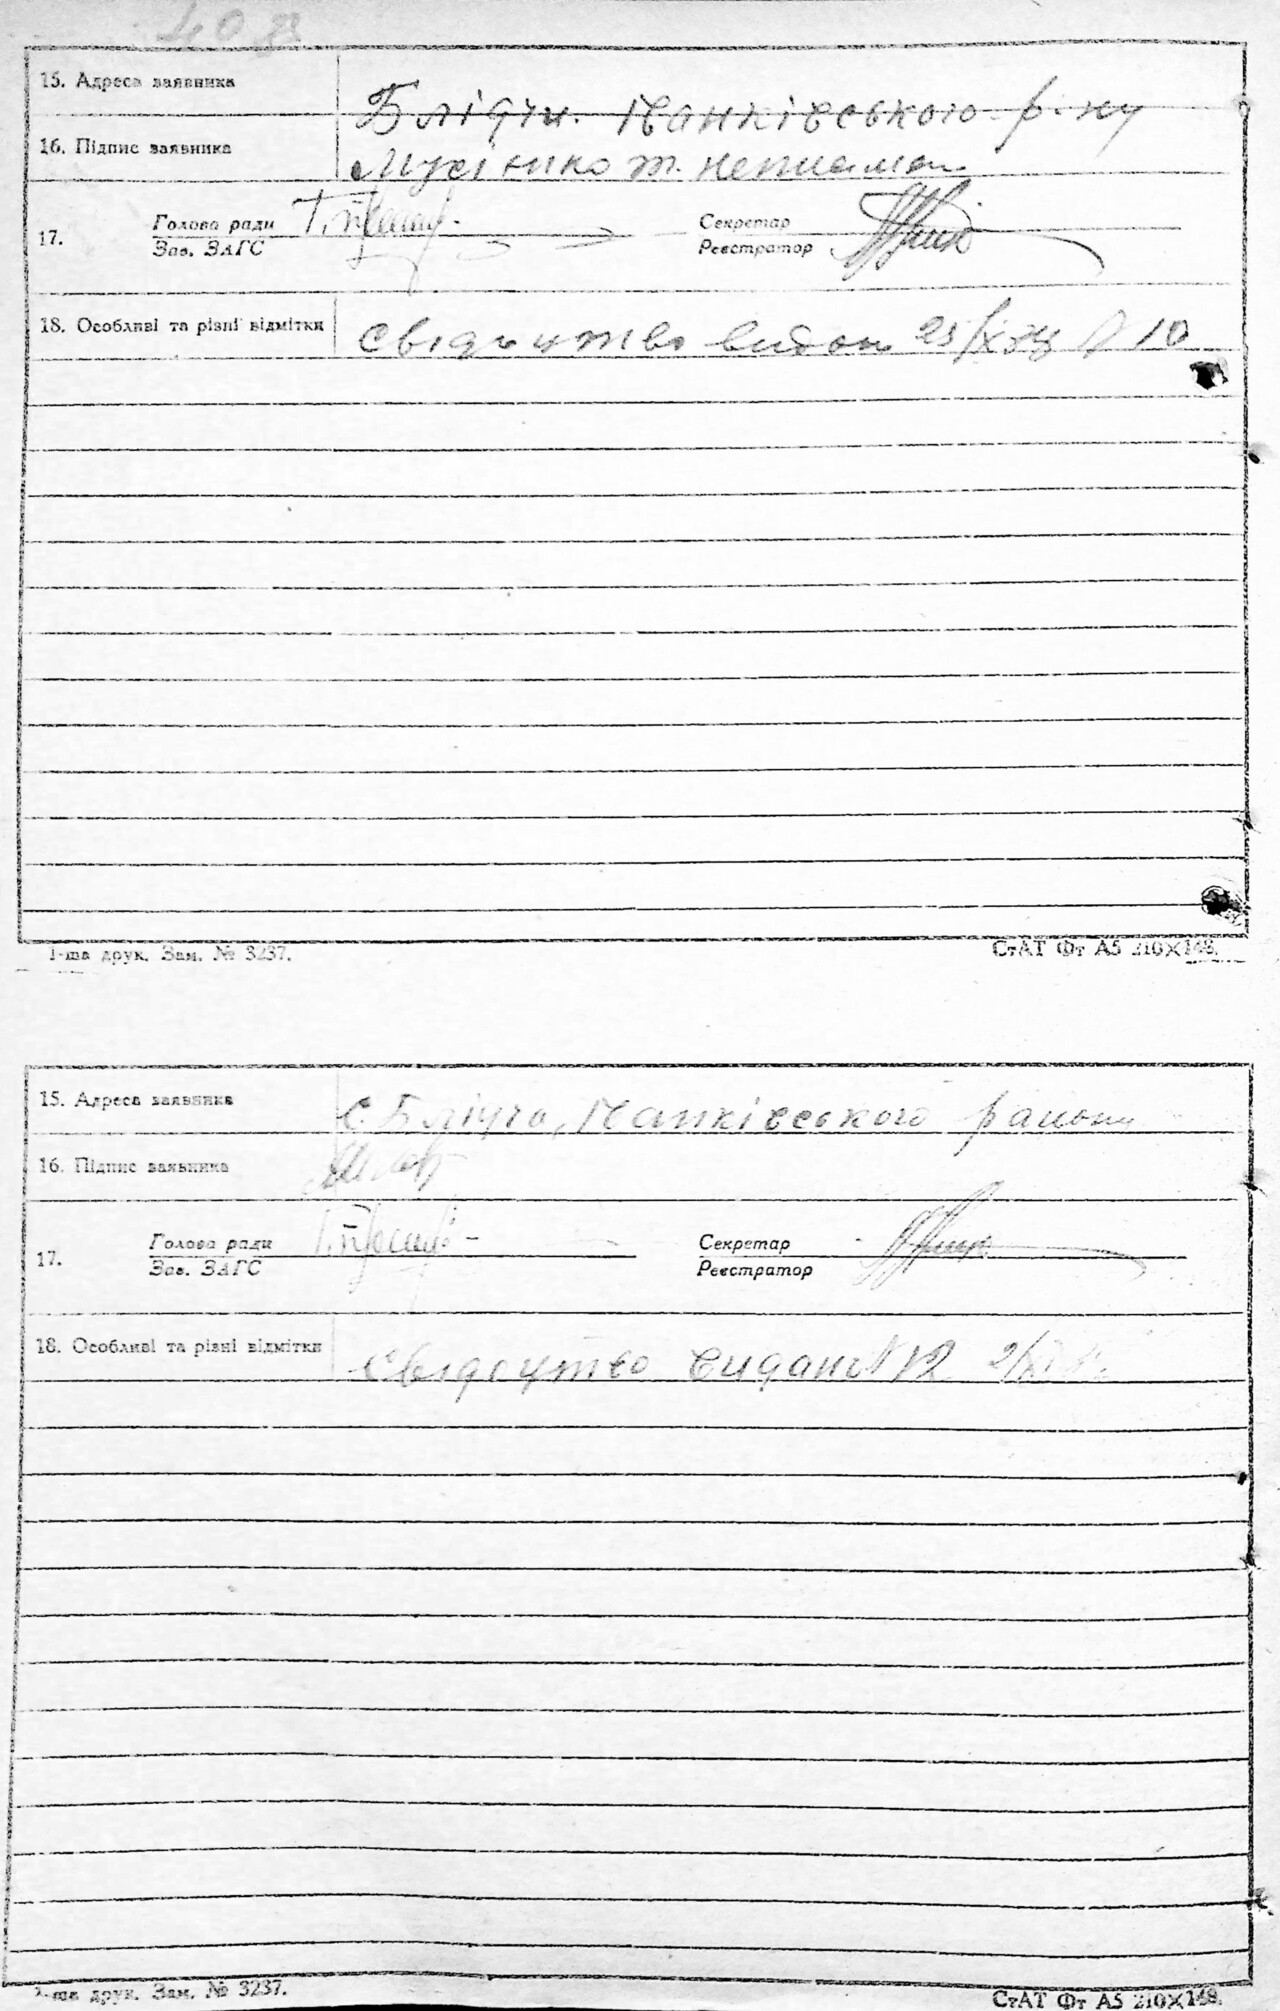 40 зв
15. Адреса заявника
Блідчи. Іванківського р-ну
16. Підпис заявника
т. неписьмен.
17. Голова ради
Зав. ЗАГС
Секретар
Реєстратор
18. Особливі та різні відмітки
свідоцтво видан 10
1-ша друк. Зам. № 3237.
СтАТ Фт А5 210×148.
15. Адреса заявника
с. Блідча, Іванківського району
16. Підпис заявника
17. Голова ради
Зав. ЗАГС
Секретар
Реєстратор
18. Особливі та різні відмітки
свідоцтво видано N 12
1-ша друк. Зам. № 3237.
СтАТ Фт А5 210×148.